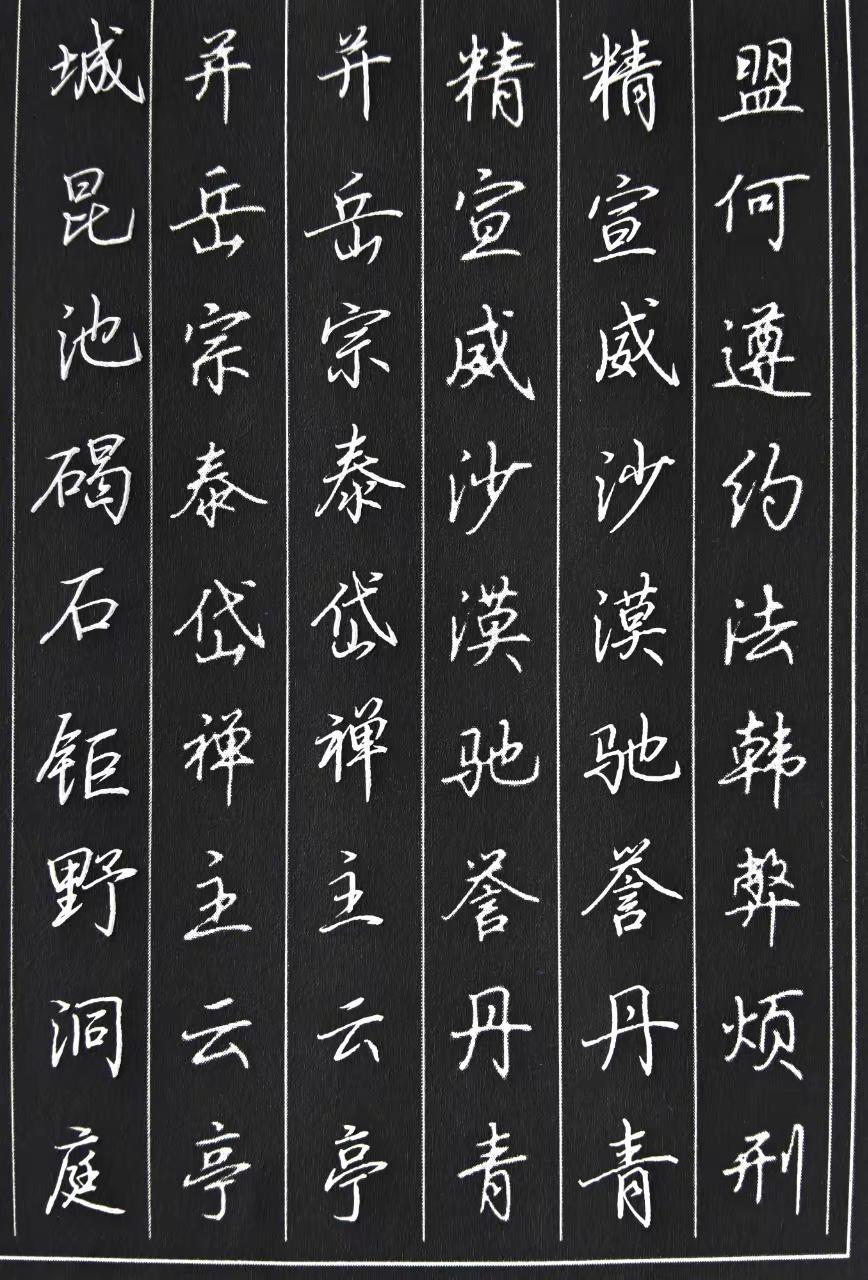 盟何遵约法韩弊烦刑
精宣威沙漠驰誉丹青
精宣威沙漠驰誉丹青
并岳宗泰岱禅主云亭
并岳宗泰岱禅主云亭
城昆池碣石钜野洞庭